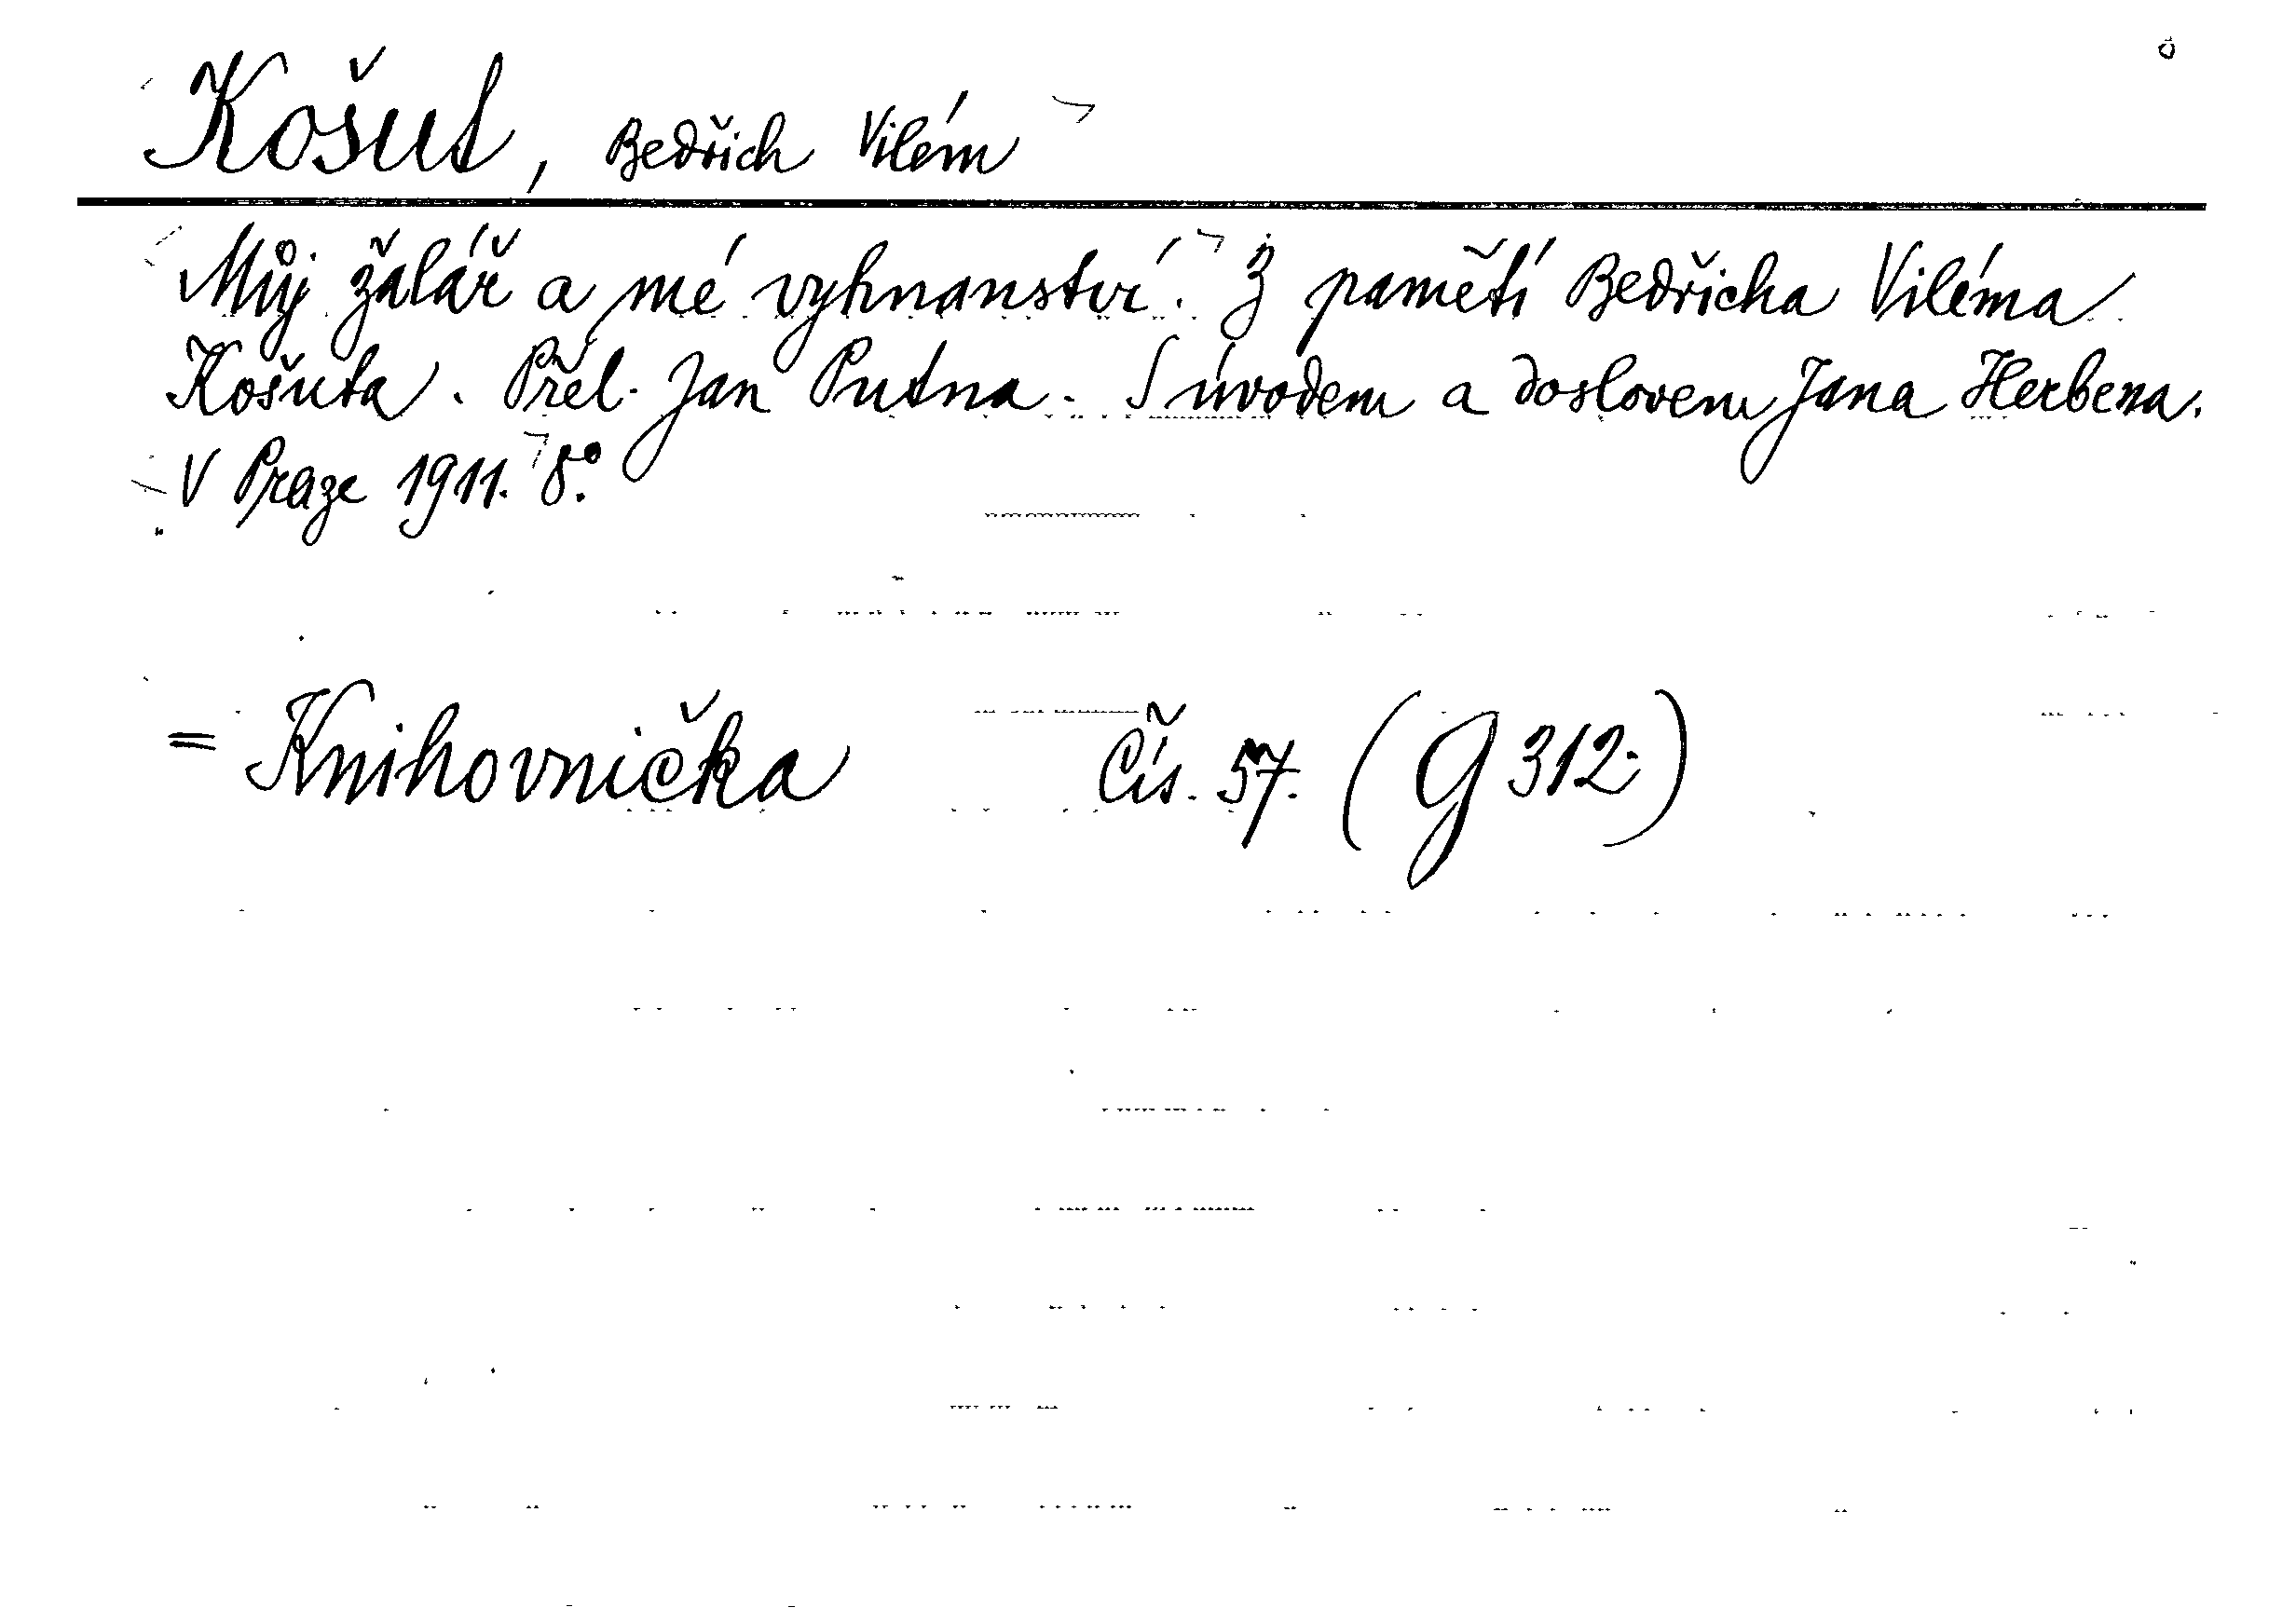 Košut, Bedřich Vilém
Můj žalář a mé vyhnanství. Z pamětí Bedřicha Viléma
Košuta. Přel. Jan Putna. S úvodem a doslovem Jana Herbena.
V Praze 1911. 8°.
= Knihovnička Čís. 57. (G 312.)